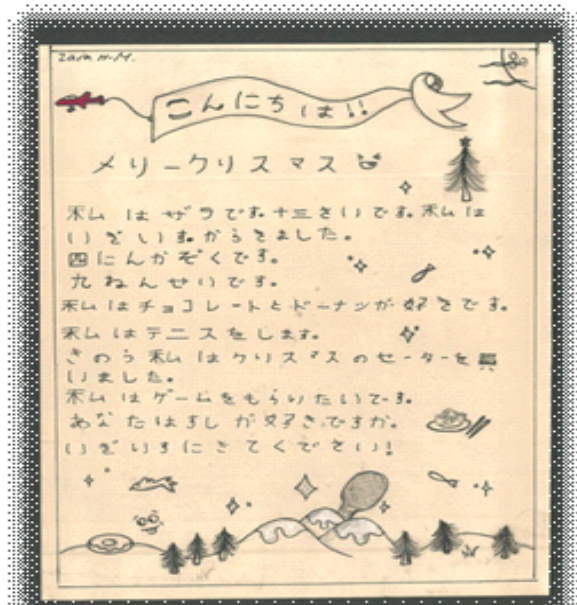 Zara H-M.
こんにちは!!
メリークリスマス
私はザラです。十三さいです。私は
いぎいすからきました。
四にんかぞくです。
九ねんせいです。
私はチョコレートとドーナツが好きです。
私はテニスをします。
きのう私はクリスマスのセーターを買
いました。
私はゲームをもらいたいです。
あなたはすしが好きですか。
いぎいすにきてください!